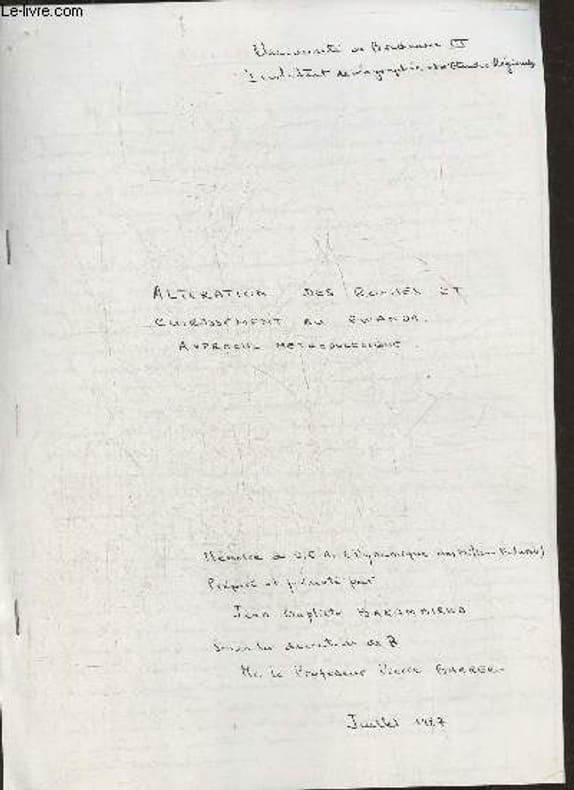 Le-livre.com
Université de Bordeaux III
Institut de Géographie et d'Etudes Régionales
ALTERATION DES ROCHES ET
CUIRASSEMENT AU RWANDA.
APPROCHE METHODOLOGIQUE.
Mémoire de D.E.A. (Dynamique des Milieux Naturels)
Préparé et présenté par
Jean Baptiste
Sous la direction de
Mr. le Professeur Pierre BARRERE
Juillet 1987